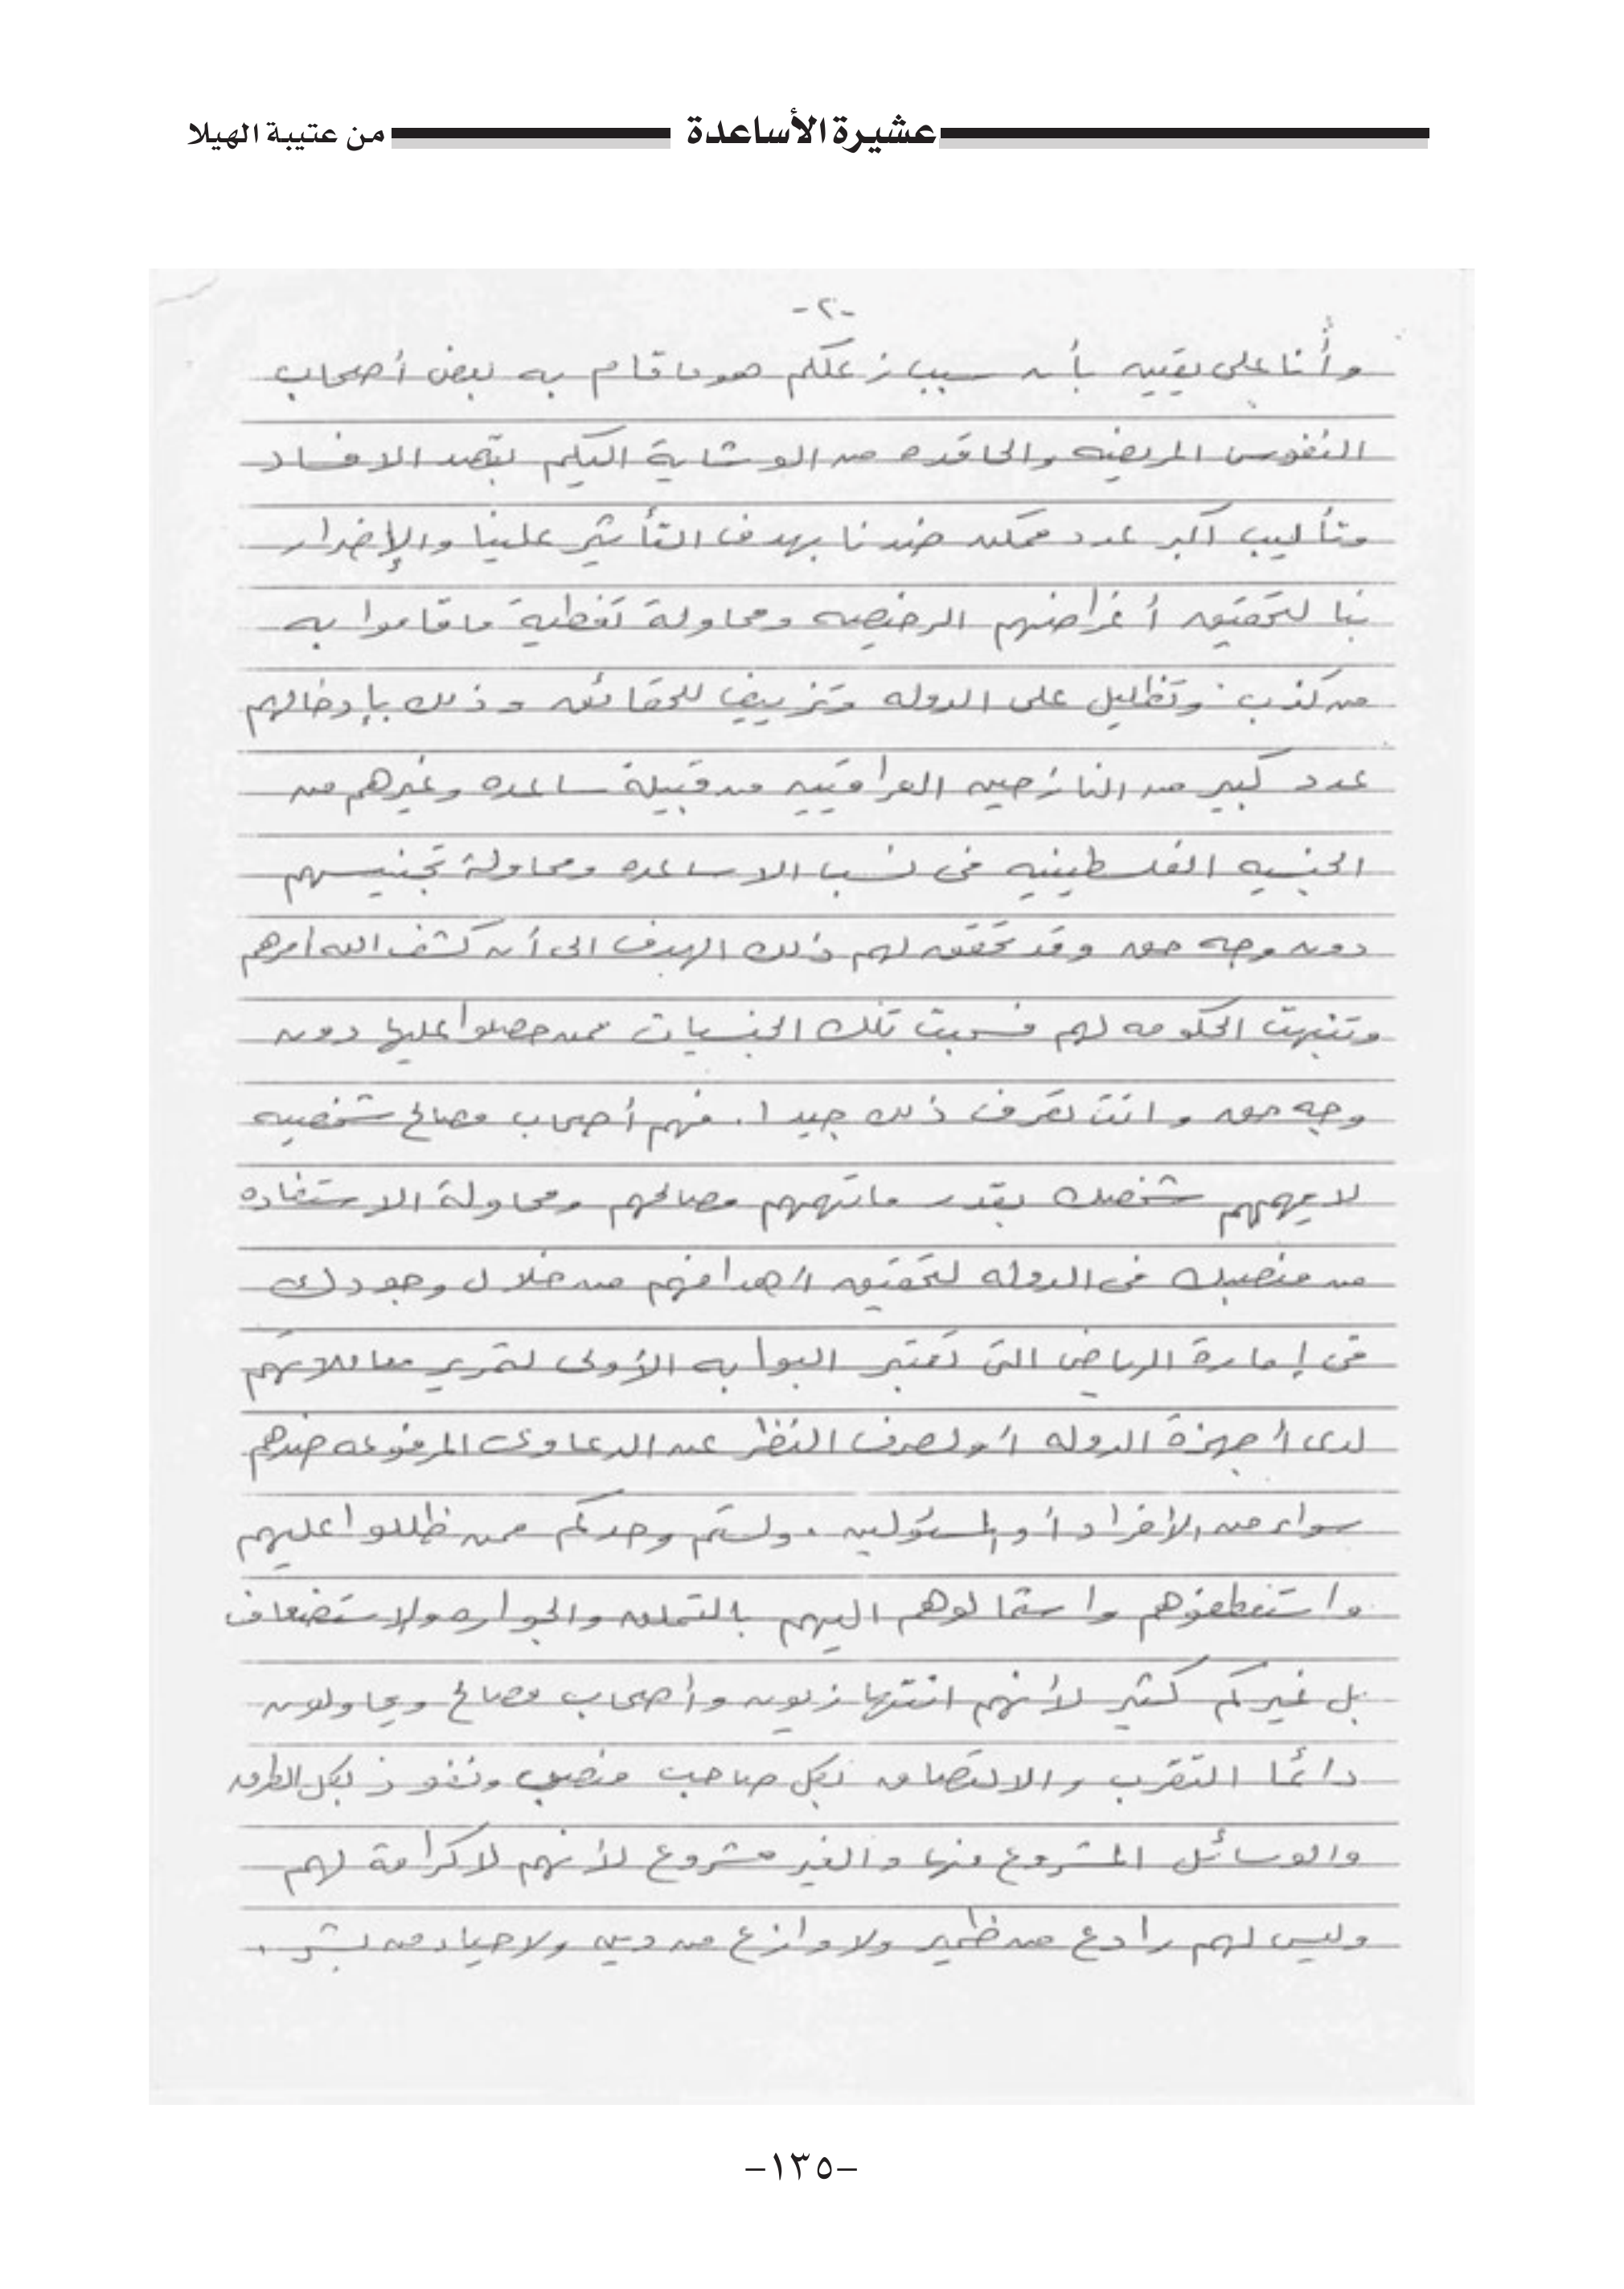 عشيرة الأساعدة من عتيبة الهيلا
-٢-
وأنا على يقين بأن سبب زعلكم هو ما قام به بعض أصحاب
النفوس المريضه والحاقده من الوشاية اليكم بقصد الافساد
وتأليب أكبر عدد ممكن ضدنا بهدف التأثير علينا والإضرار
بنا لتحقيق أغراضهم الرخيصه ومحاولة تغطية ما قاموا به
من كذب وتظليل على الدوله وتزييف للحقائق وذلك بإدخالهم
عدد كبير من النازحين العراقيين من قبيلة ساعده وغيرهم من
الجنسيه الفلسطينيه في نسب الاساعده ومحاولة تجنيسهم
دون وجه حق وقد تحقق لهم ذلك الهدف الى أن كشف الله امرهم
وتنبهت الحكومه لهم فسحبت تلك الجنسيات ممن حصلوا عليها دون
وجه حق وانت تعرف ذلك جيدا. فهم أصحاب مصالح شخصيه
لا يهمهم شخصك بقدر ماتهمهم مصالحهم ومحاولة الاستفاده
من منصبك في الدوله لتحقيق أهدافهم من خلال وجودك
في إمارة الرياض التي تعتبر البوابه الأولى لتمرير معاملاتهم
لدى أجهزة الدوله أو لصرف النظر عن الدعاوى المرفوعه ضدهم
سواء من الافراد أو المسئولين . ولستم وحدكم ممن ظللوا عليهم
واستعطفوهم واستمالوهم اليهم بالتملق والجواره والاستضعاف
بل غيركم كثير لأنهم انتهازيون وأصحاب مصالح ويحاولون
دائما التقرب والالتصاق بكل صاحب منصب ونفوذ بكل الطرق
والوسائل المشروع منها والغير مشروع لأنهم لا كرامة لهم
وليس لهم رادع من ظمير ولا وازع من دين ولا حياء من بشر .
-١٣٥-